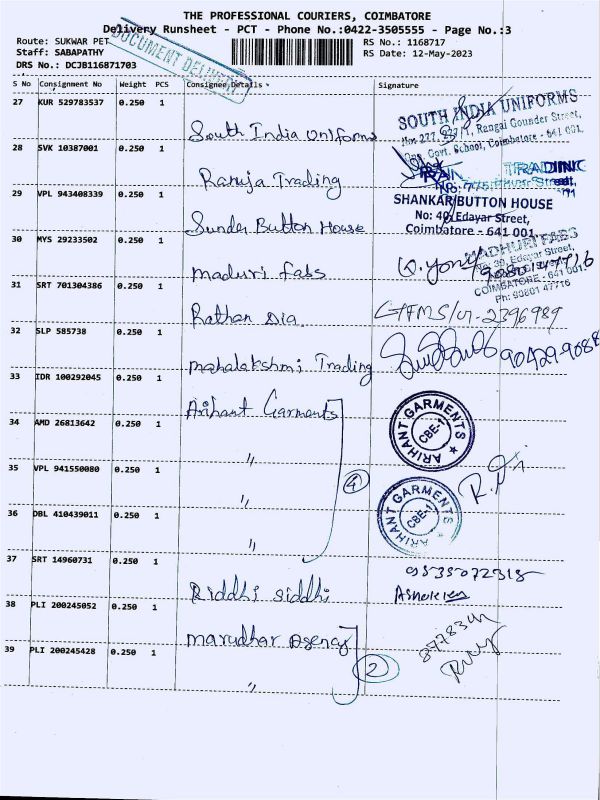 THE PROFESSIONAL COURIERS, COIMBATORE
Delivery Runsheet - PCT - Phone No.:0422-3505555 - Page No.:3
Route: SUKWAR PET
RS No.: 1168717
Staff: SABAPATHY
RS Date: 12-May-2023
DRS No.: DCJB116871703
DOCUMENT DELIVERY
S No Consignment No Weight PCS Consignee Details Signature
27 KUR 529783537 0.250 1
South India Uniforms
SOUTH INDIA UNIFORMS
Rangai Gounder Street,
Govt. School, Coimbatore - 641 001.
28 SVK 10387001 0.250 1
Ranuja Trading
TRADING
Edayar Street,
29 VPL 943408339 0.250 1
Sunder Button House
SHANKAR BUTTON HOUSE
No: 40, Edayar Street,
Coimbatore - 641 001
30 MYS 29233502 0.250 1
maduri fabs
MADHURI FABS
30, Edayar Street,
COIMBATORE - 641 001.
Ph: 90801 47716
9080147716
31 SRT 701304386 0.250 1
Rathan Dia
32 SLP 585738 0.250 1
mahalakshmi Trading
33 IDR 100292045 0.250 1
Arihant Garments
ARIHANT GARMENTS
CBE-1
34 AMD 26813642 0.250 1
"
35 VPL 941550080 0.250 1
"
4
36 DBL 410439011 0.250 1
"
ARIHANT GARMENTS
CBE-1
37 SRT 14960731 0.250 1
Riddhi siddhi
38 PLI 200245052 0.250 1
marudhar Agency
39 PLI 200245428 0.250 1
"
2